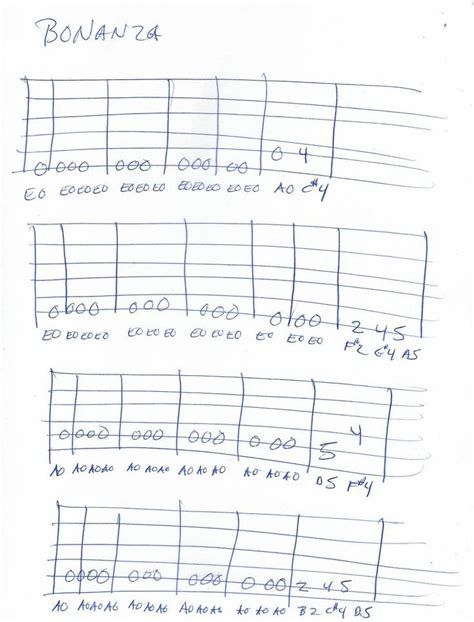 BONANZA
0 000 000 000 00 0 4
E0 E0E0E0 E0E0E0 E0E0E0 E0E0 A0 C#4
0 000 000 000 0 00 2 4 5
E0 E0E0E0 E0E0E0 E0E0E0 E0 E0 E0 F#2 G#4 A5
0 000 000 000 0 00 5 4
A0 A0A0A0 A0A0A0 A0A0A0 A0 A0A0 D5 F#4
0 000 000 000 0 00 2 4 5
A0 A0A0A0 A0A0A0 A0A0A0 A0 A0 A0 B2 C#4 D5